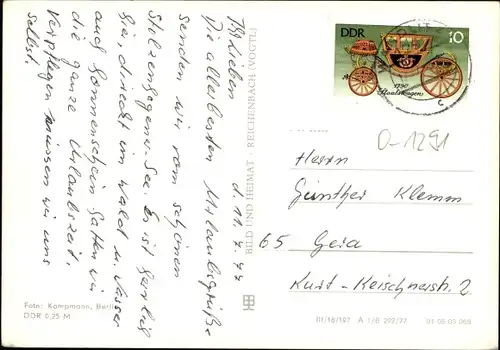 d. 11.7.77
Ihr Lieben
Die allerbesten Urlaubsgrüße
senden wir vom schönen
Stolzenhagener-See. Es ist herrlich
hier, direkt im Wald u. Wasser
auch Sonnenschein hatten wir
die ganze Urlaubszeit.
Verpflegen müssen wir uns
selbst.
Foto: Kampmann, Berlin
DDR 0,25 M
BILD UND HEIMAT · REICHENBACH (VOGTL)
DDR 10
1790
Staatswagen
O-1291
Herrn
Günther Klemm
65 Gera
Kurt-Keischnerstr. 2
III/18/197 A 1/B 202/77 01 05 03 069